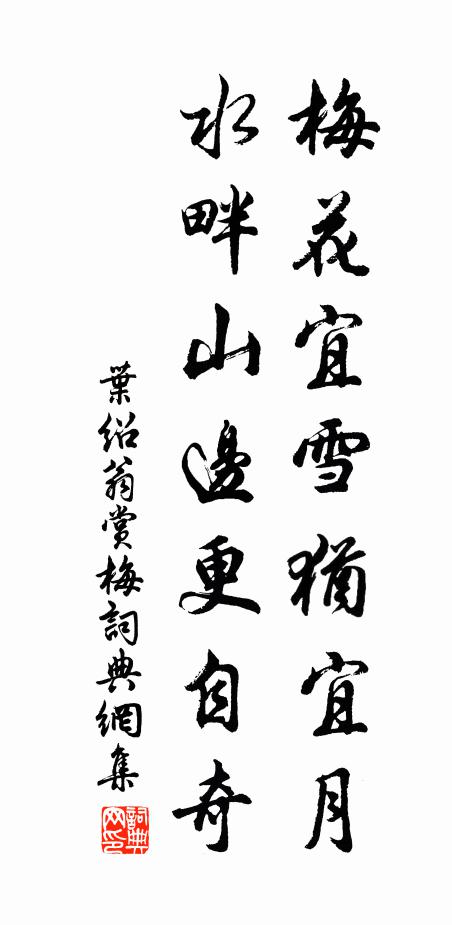 梅花宜雪猶宜月
水畔山邊更自奇
葉紹翁賞梅詞典網集
詞典网印